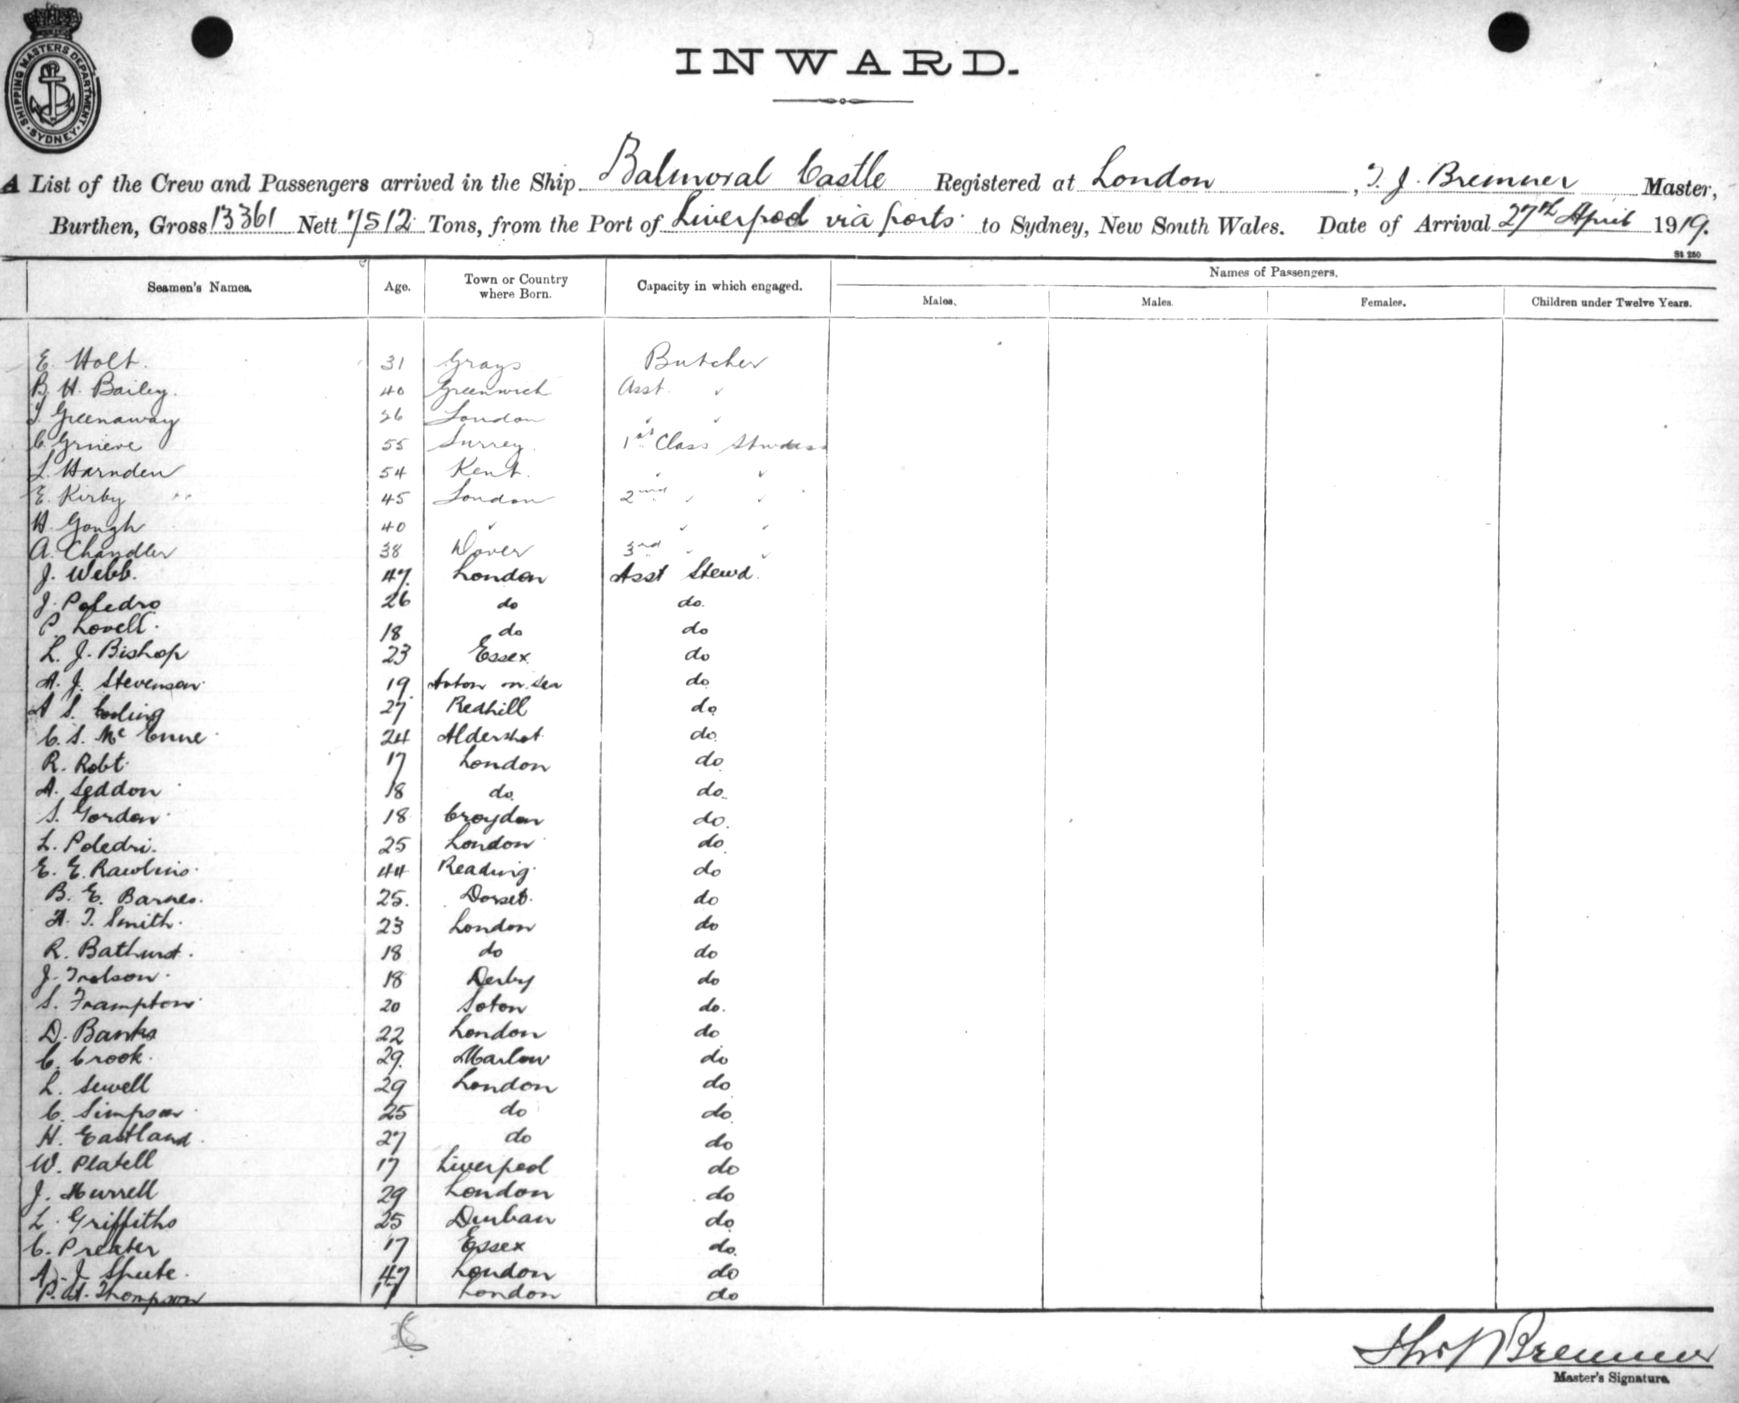 SHIPPING MASTERS DEPARTMENT. SYDNEY
INWARD.
A List of the Crew and Passengers arrived in the Ship Balmoral Castle Registered at London, T. J. Bremner Master,
Burthen, Gross 13361 Nett 7512 Tons, from the Port of Liverpool via ports to Sydney, New South Wales. Date of Arrival 27th April 1919.
Seamen's Names. Age. Town or Country where Born. Capacity in which engaged. Names of Passengers.
Males. Males. Females. Children under Twelve Years.
E. Holt. 31 Grays Butcher
B. H. Bailey. 40 Greenwich Asst. "
Greenaway London " "
C. Grieve 55 Surrey. 1st Class Stwdess
L. Harnden 54 Kent. " "
E. Kirby 45 London 2nd " "
H. Gough 40 " " "
A. Chandler 38 Dover 3rd " "
J. Webb. 47. London Asst Stewd.
J. Poledro 26 do do.
P. Lovell. 18 do do
L. J. Bishop 23 Essex do
A. J. Stevenson 19 on Sea do
A S. 27 Redhill do
C. S. Mc 24 Aldershot do.
R. Robt. 17 London do
A. Seddon 18 do. do.
S. Gordon 18 Croydon do.
L. Poledri. 25 London do
E. E. Rawlins 44 Reading do
B. E. Barnes. 25. Dorset. do
A. T. Smith. 23 London do
R. Bathurst. 18 do do
J. 18 Derby do
S. Frampton 20 Soton do.
D. Banks 22 London do
C. Crook. 29. Marlow do
L. Sewell 29 London do
C. Simpson 25 do do
H. Eastland. 27 do do
W. Platell 17 Liverpool do
J. Murrell 29 London do
L. Griffiths 25 Durban do
C. Preater 17 Essex do.
A. J. 47 London do
P. H. Thompson 17 London do
Thos J Bremner
Master's Signature.